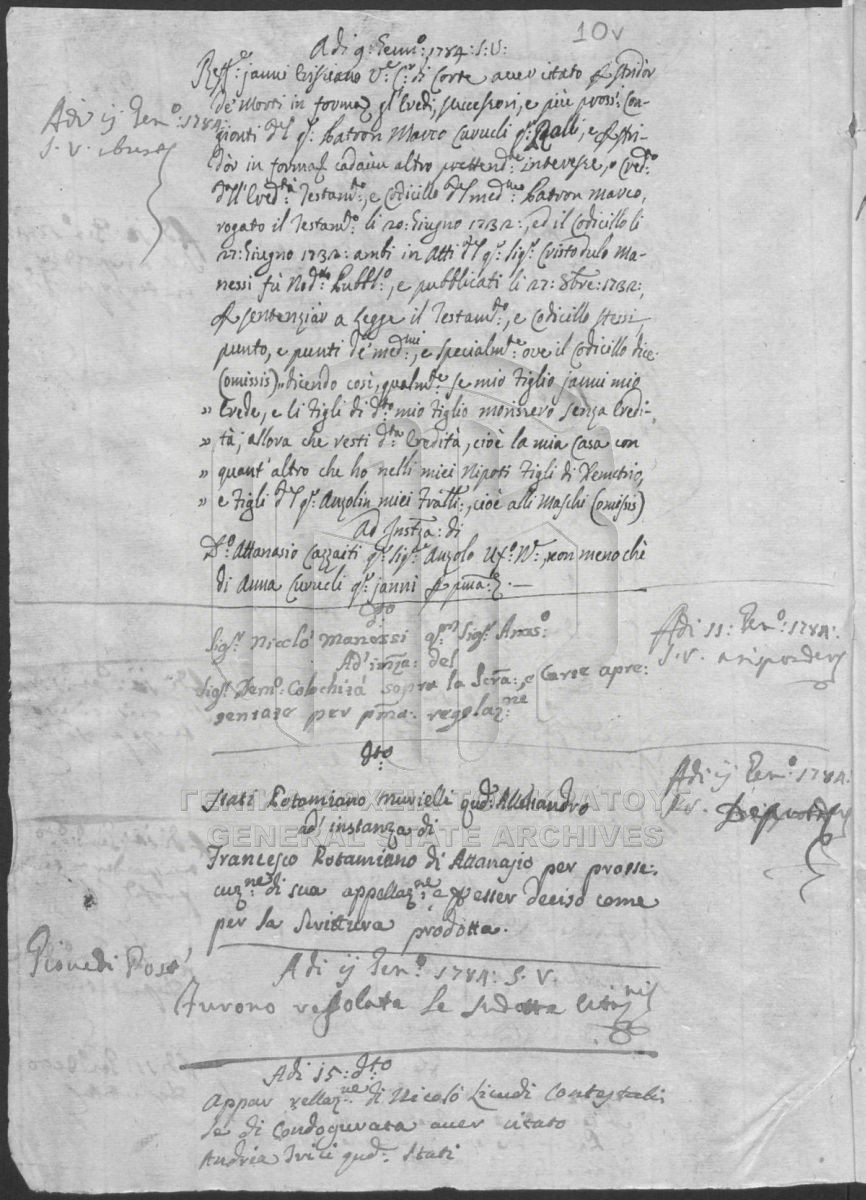 10v
Adi 9: Genn.º 1784: S:V:
Ad 11 Gen.º 1784:
S. V.
janni Crissiano V.e C.r di Corte aver citato stridor
de' Morti in forma gl'Eredi, successori, e più prossi: Con-
gionti del q.m Patron Marco Curucli q.m Ralli, e stri-
dor in forma cadaun altro prettend.e interesse, o Cred.o
dell'Ered.tà Testam.o, e Codicillo del med.mo Patron Marco,
rogato il Testam.o li 20: Giugno 1732:, ed il Codicillo li
27: Giugno 1732: ambi in Atti del q.m Sig.r Cristodulo Ma-
nessi fù Nod.o Pubb.o, e pubblicati li 27: 8bre: 1732:,
sentenziar a Legge il Testam.o, e Codicillo stessi,
punto, e punti de' med.mi, e specialm.e ove il Codicillo dice
(omissis) „ dicendo così, qualm.e se mio figlio janni mio
„ Erede, e li figli di d.to mio figlio morissero senza Eredi-
„ tà, allora che resti d.ta Eredità, cioè la mia Casa con
„ quant'altro che ho nelli miei Nipoti figli di Demetrio,
„ e figli del q.m Anzolin miei Fratli:, cioè alli Maschi (omissis)
Ad Instza: di
D.º Attanasio Cazzaiti q.m Sig.r Anzolo Ux.º N.e, non meno chè
di Anna Curucli q.m janni p pma: —
d.to
Sig.r Niccló Manessi q.m Sig.r Anas.º
Ad inza: del
Sig.r Dem.º Colochirà sopra la Scra:, e Carte apre:
sentate per pma: regolaz.ne
Adi 11: Gen.º: 1784:
S. V. a risponder
d.to
Stati Potamiano Murieli qud. Allesandro
ad instanza di
Francesco Potamiano di Attanasio per prosse:
cuz.ne di sua appellaz.ne e esser deciso come
per la Scrittura prodotta.
Adi 11 Gen.º 1784:
S. V.
Giovedi Post.
Adi 11 Gen.º 1784: S. V.
Furono le
Adi 15: d.to
Appar rellaz.ne di Nicoló Licudi Contestabi:
le di Condogurata aver citato
Andrea qud: Stati
ΓΕΝΙΚΑ ΑΡΧΕΙΑ ΤΟΥ ΚΡΑΤΟΥΣ
GENERAL STATE ARCHIVES